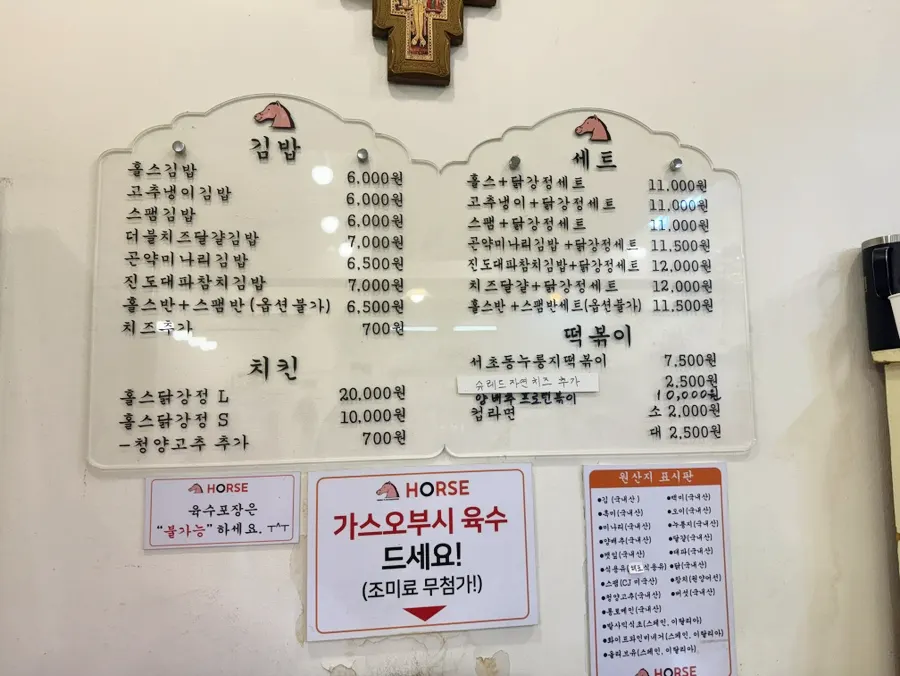 김밥
홀스김밥 6,000원
고추냉이김밥 6,000원
스팸김밥 6,000원
더블치즈달걀김밥 7,000원
곤약미나리김밥 6,500원
진도대파참치김밥 7,000원
홀스반+스팸반(옵션불가) 6,500원
치즈추가 700원
치킨
홀스닭강정 L 20,000원
홀스닭강정 S 10,000원
-청양고추 추가 700원
세트
홀스+닭강정세트 11,000원
고추냉이+닭강정세트 11,000원
스팸+닭강정세트 11,000원
곤약미나리김밥+닭강정세트 11,500원
진도대파참치김밥+닭강정세트 12,000원
치즈달걀+닭강정세트 12,000원
홀스반+스팸반세트(옵션불가) 11,500원
떡볶이
서초동누룽지떡볶이 7,500원
슈레드자연치즈 추가 2,500원
양배추 프로틴볶이 10,000원
컵라면 소 2,000원
대 2,500원
HORSE
육수포장은
"불가능"하세요. ㅜㅅㅜ
HORSE
가스오부시 육수
드세요!
(조미료 무첨가!)
원산지 표시판
●김(국내산) ●백미(국내산)
●흑미(국내산) ●오이(국내산)
●미나리(국내산) ●누룽지(국내산)
●양배추(국내산) ●달걀(국내산)
●깻잎(국내산) ●대파(국내산)
●식용유(식용유) ●닭(국내산)
●스팸(CJ 미국산) ●참치(원양어선)
●청양고추(국내산) ●버섯(국내산)
●통로메인(국내산)
●발사믹식초(스페인, 이탈리아)
●화이트와인비네거(스페인, 이탈리아)
●올리브유(스페인, 이탈리아)
HORSE